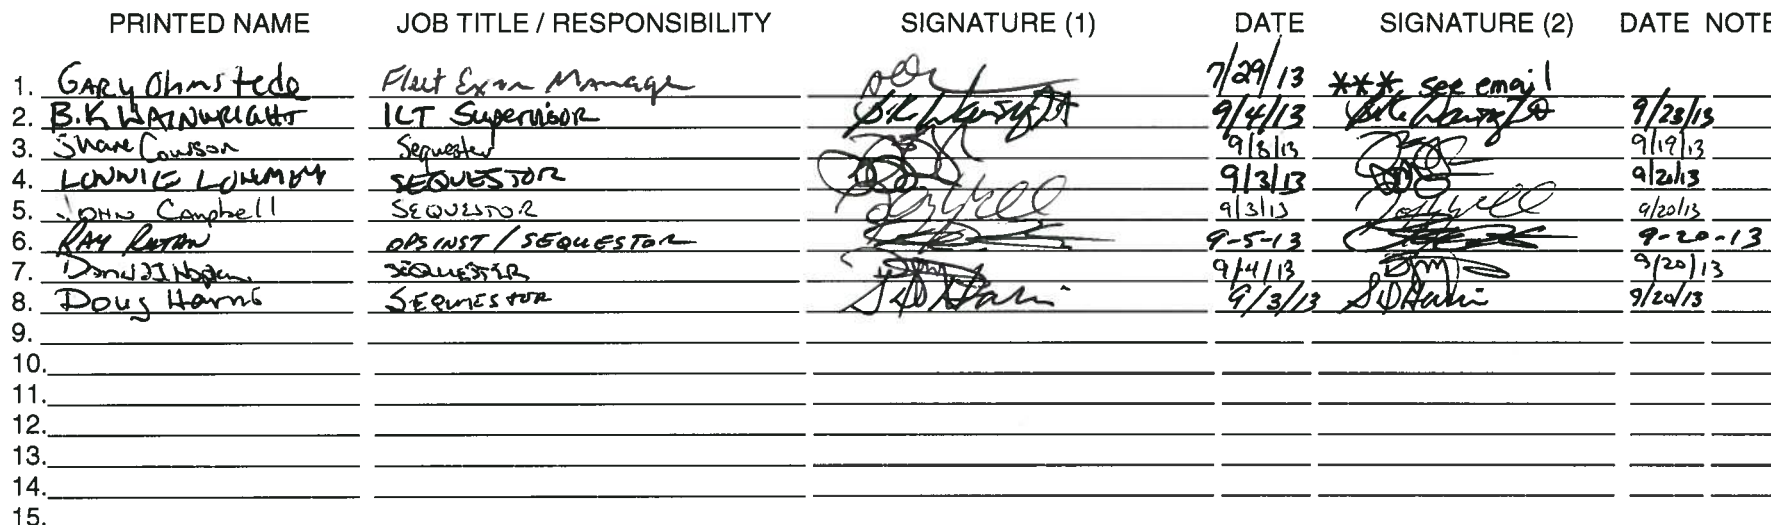 PRINTED NAME JOB TITLE / RESPONSIBILITY SIGNATURE (1) DATE SIGNATURE (2) DATE NOTE
1. GARY Ohmstede Fleet Exam Manager 7/29/13 *** see email
2. B.K WAINWRIGHT ILT Supervisor 9/4/13 9/23/13
3. Shane Courson Sequester 9/3/13 9/19/13
4. LONNIE SEQUESTOR 9/3/13 9/20/13
5. JOHN Campbell SEQUESTOR 9/3/13 9/20/13
6. RAY RATAN OPS INST / SEQUESTOR 9-5-13 9-20-13
7. SEQUESTER 9/4/13 9/20/13
8. Doug Harris SEQUESTOR 9/3/13 9/20/13
9.
10.
11.
12.
13.
14.
15.